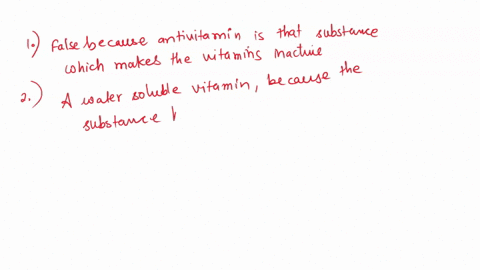 1.) False because antivitamin is that substance
which makes the vitamins inactive
2.) A water soluble vitamin, because the
substance